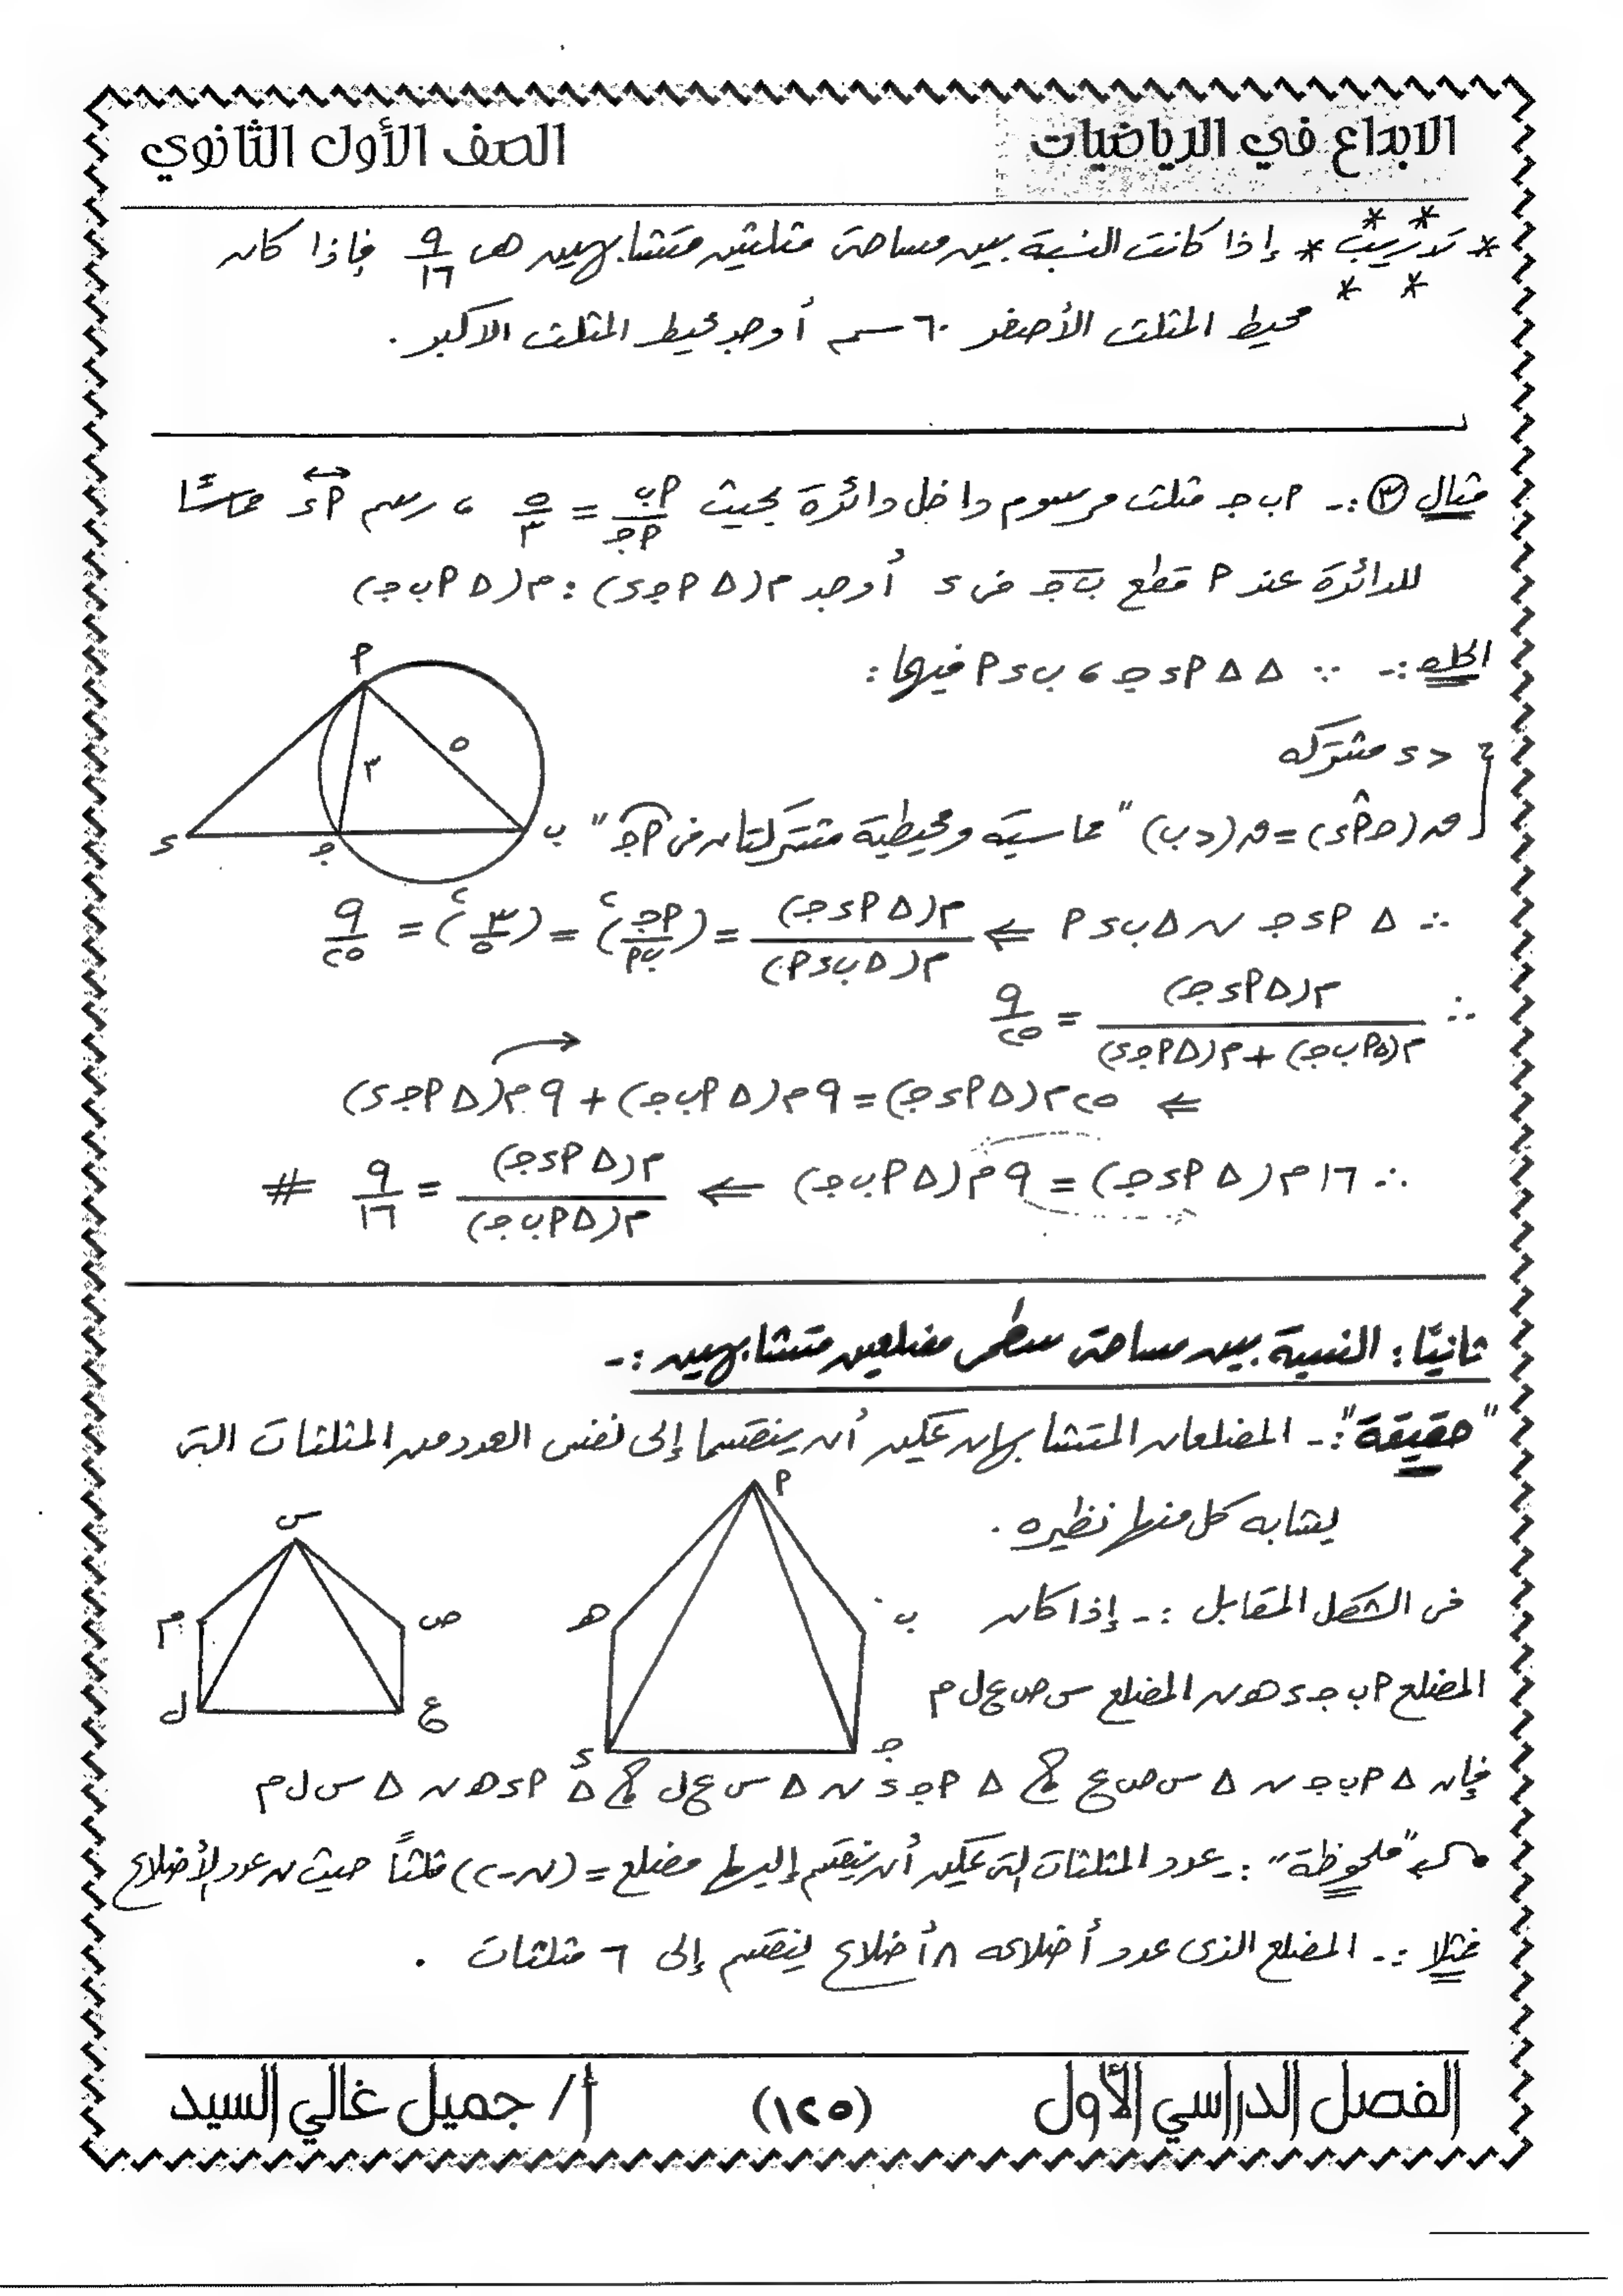 الابداع في الرياضيات
الصف الأول الثانوي
* تدريب * إذا كانت النسبة بين مساحتى مثلثين متشابهين هى ٩/١٦ فإذا كان
محيط المثلث الأصغر ٦٠ سم أوجد محيط المثلث الاكبر .
مثال ③ :- م ب ج مثلث مرسوم داخل دائرة بحيث م ب/م ج = ٥/٣ ، رسم م ء مماسًا
للدائرة عند م قطع ب ج فى ء أوجد م(Δ م ج ء) : م(Δ م ب ج)
الحل :- ∵ Δ Δ م ء ج ، ب ء م فيهما :
< ء مشتركه
ق(ج م ء) = ق(< ب) "مماسيه ومحيطية مشتركتان فى م ج"
م
٥
٣
ب
ج
ء
∴ Δ م ء ج ~ Δ ب ء م ⇐ م(Δ م ء ج)/م(Δ ب ء م) = (م ج/ب م)٢ = (٣/٥)٢ = ٩/٢٥
∴ م(Δ م ء ج)/م(Δ م ب ج) + م(Δ م ج ء) = ٩/٢٥
⇐ ٢٥ م(Δ م ء ج) = ٩ م(Δ م ب ج) + ٩ م(Δ م ج ء)
∴ ١٦ م(Δ م ء ج) = ٩ م(Δ م ب ج) ⇐ م(Δ م ء ج)/م(Δ م ب ج) = ٩/١٦ #
ثانيًا : النسبة بين مساحتى سطحى مضلعين متشابهين :-
"حقيقة" :- المضلعان المتشابهان يمكن أن ينقسما إلى نفس العدد من المثلثات التى
يشابه كل منها نظيره .
فى الشكل المقابل :- إذا كان
المضلع م ب ج ء ه ~ المضلع س ص ع ل م
م
ب
ج
ء
ه
س
ص
ع
ل
م
فإن Δ م ب ج ~ Δ س ص ع ، Δ م ج ء ~ Δ س ع ل ، Δ م ء ه ~ Δ س ل م
"ملحوظة" :- عدد المثلثات التى يمكن أن ينقسم إليها مضلع = (ن - ٢) مثلثاً حيث ن عدد الأضلاع
فمثلا :- المضلع الذى عدد أضلاعه ٨ أضلاع ينقسم إلى ٦ مثلثات .
الفصل الدراسي الأول
(١٢٥)
أ/ جميل غالي السيد